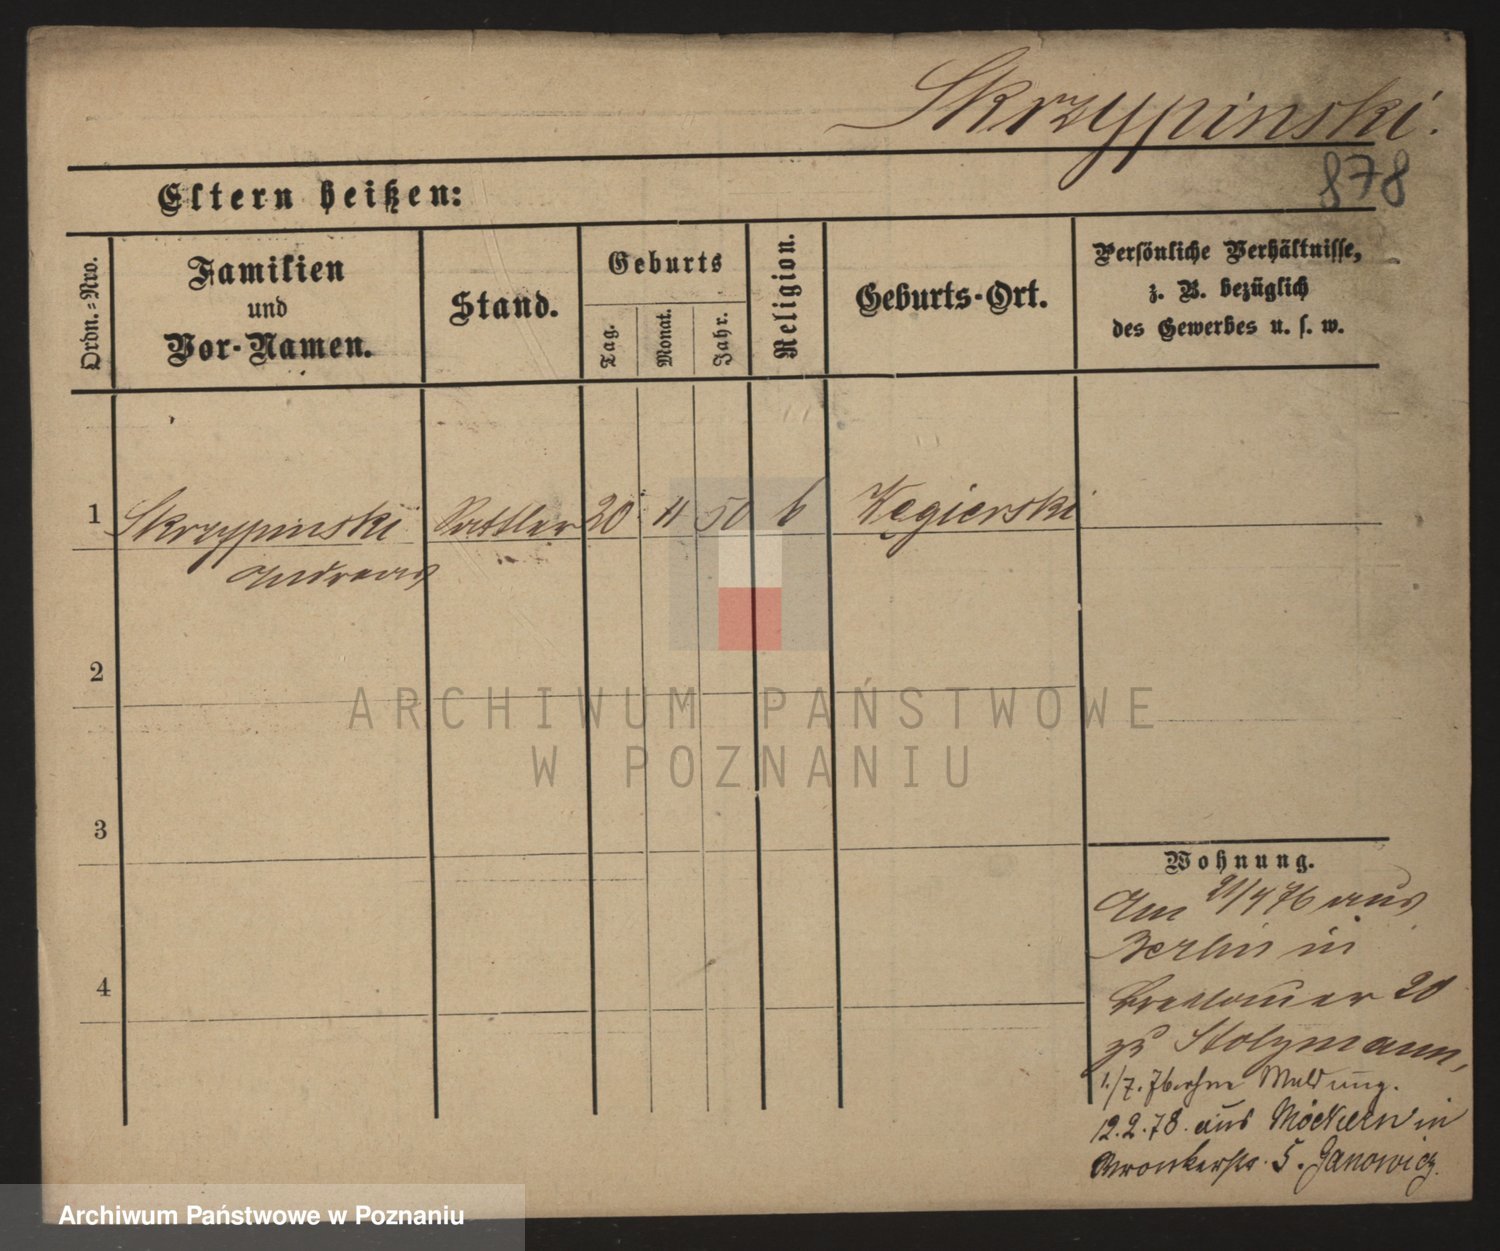 Skrzypinski.
878
Eltern heißen:
Ordn.-Nro.
Familien
und
Vor-Namen.
Stand.
Geburts
Tag.
Monat.
Jahr.
Religion.
Geburts-Ort.
Persönliche Verhältnisse,
z. B. bezüglich
des Gewerbes u. s. w.
1 Skrzypinski Sattler 20 11 50 Węgierski
Andreas
2
ARCHIWUM PAŃSTWOWE
W POZNANIU
3
Wohnung.
Am 21/4 76 aus
Berlin in
Breslauer 20
zu Stolzmann,
1./7. 76 ohne Meldung.
12.2.78. aus Möckern in
Wronkerstr. 5. Janowicz.
4
Archiwum Państwowe w Poznaniu